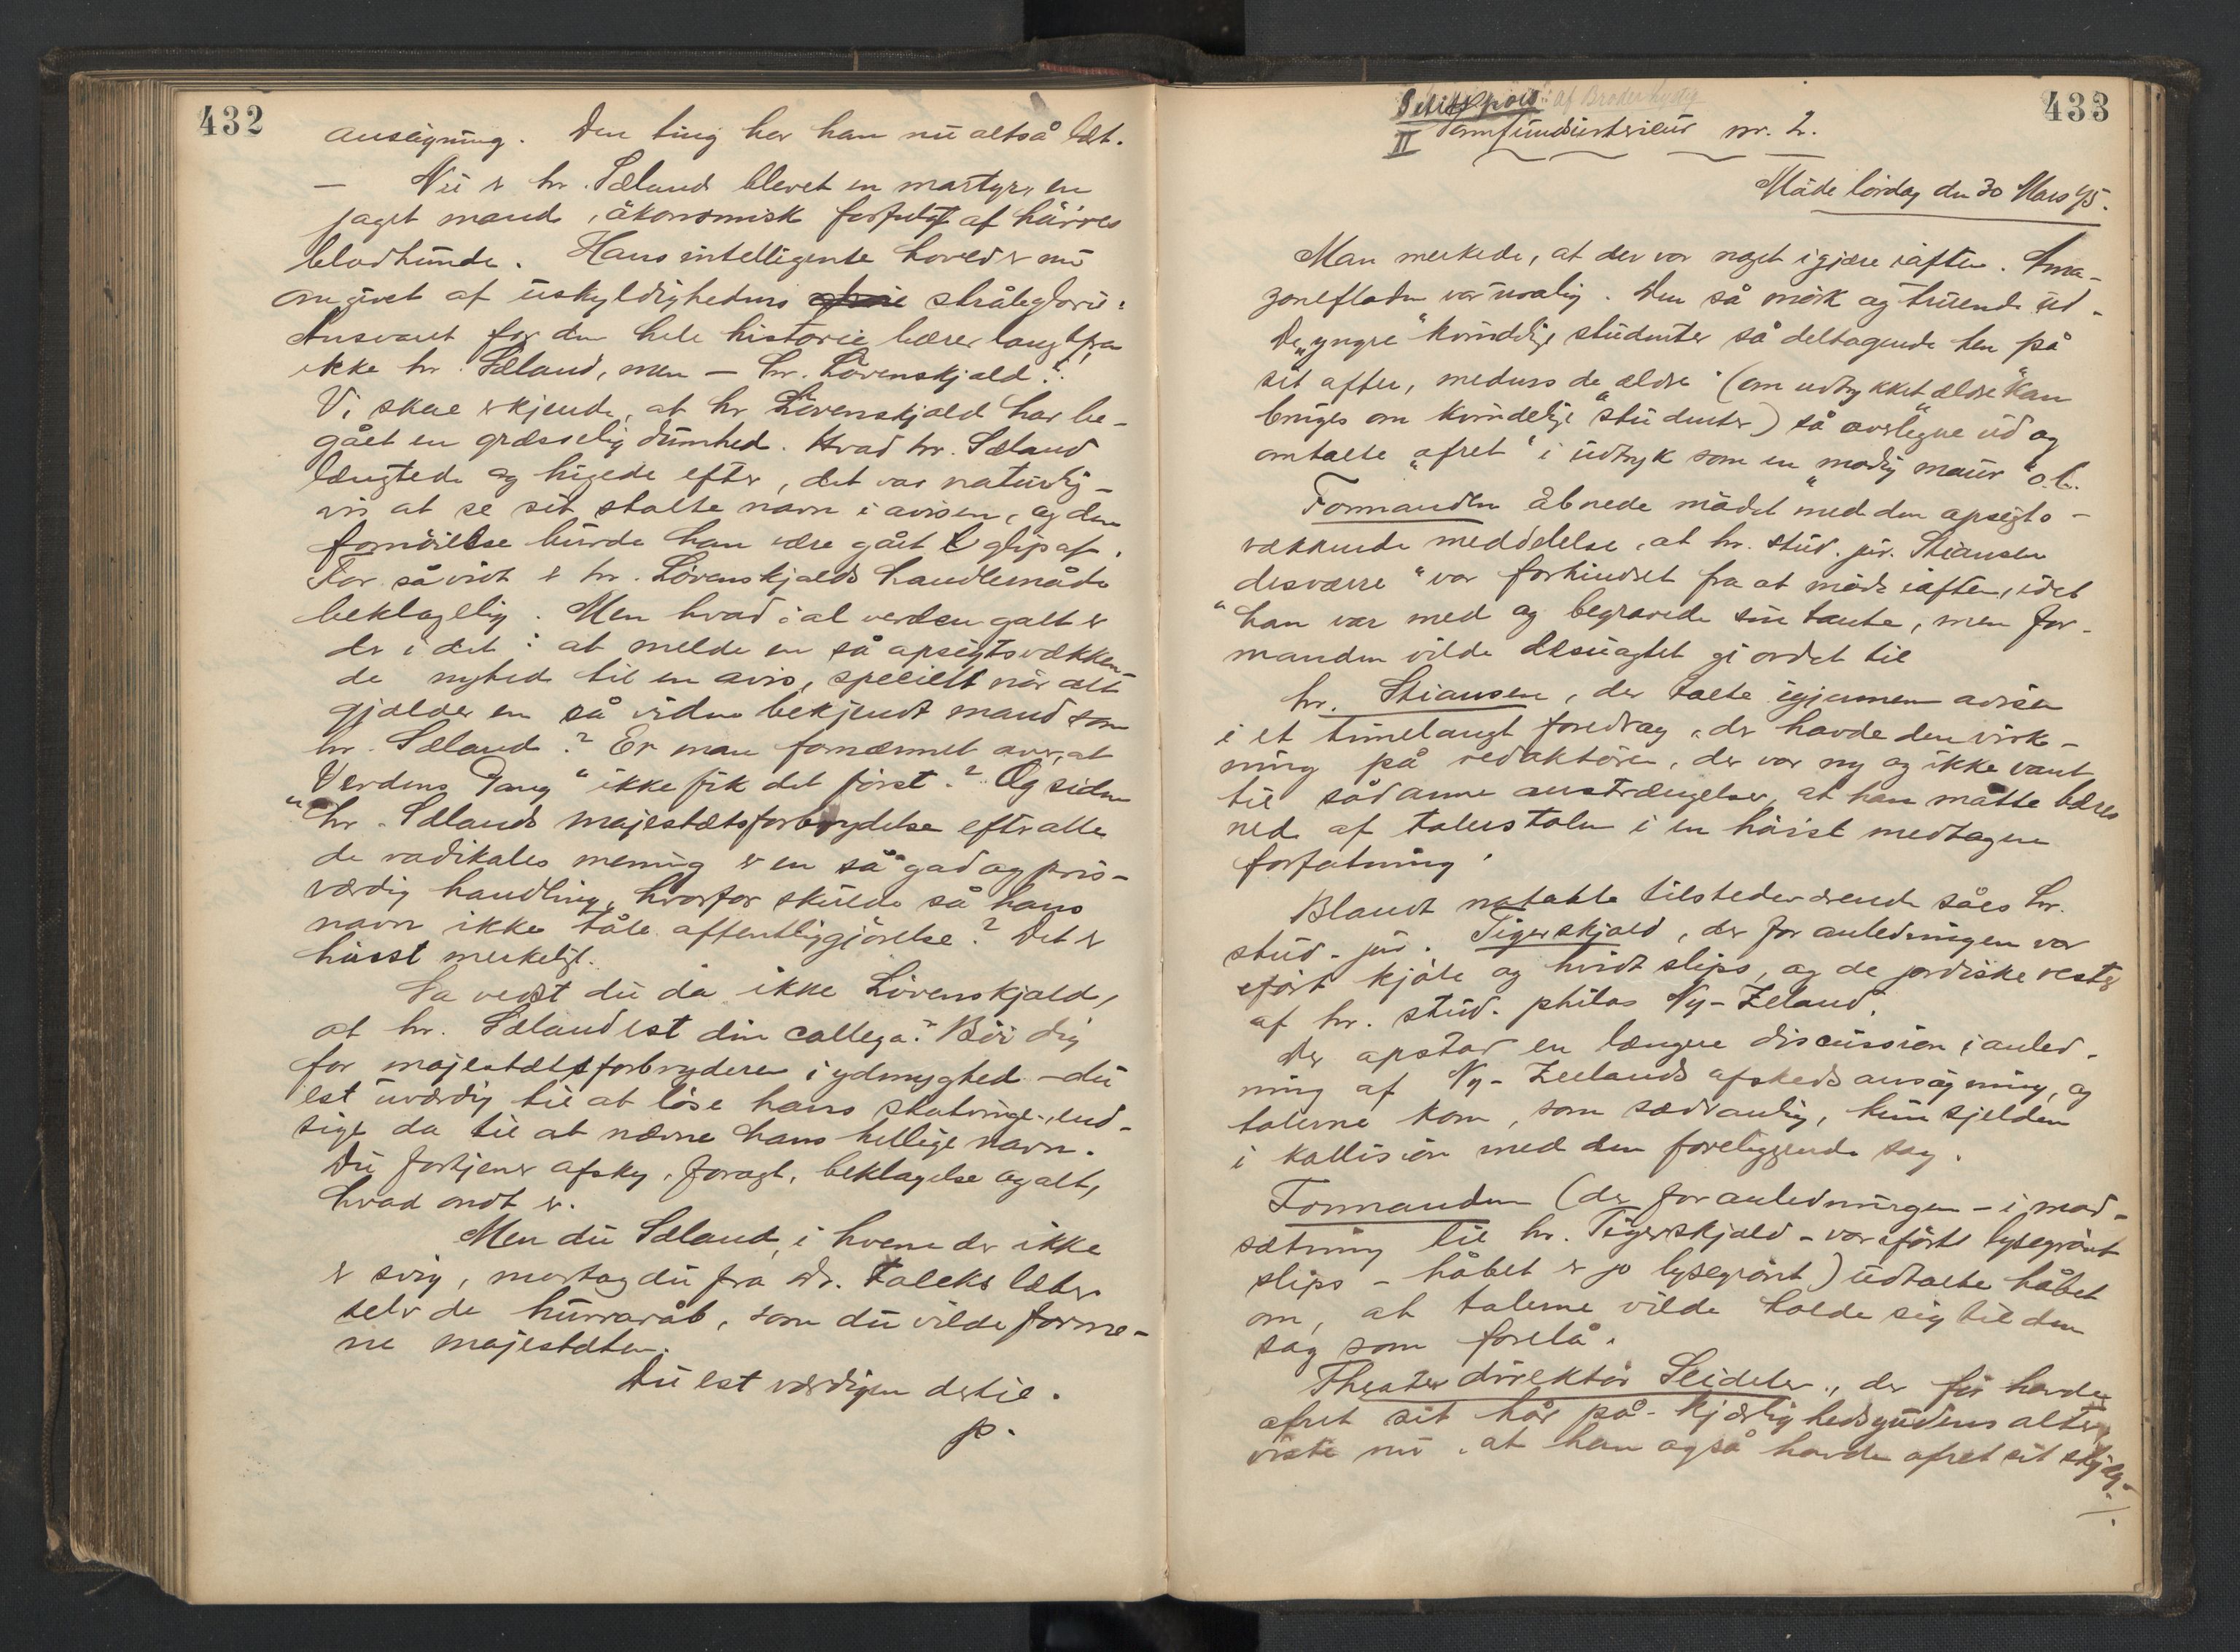 432
ansøgning. Den ting har han nu altså lært.
— Nu er hr. Sæland blevet en martyr, en
jaget mand, økonomisk forfulgt af hüires
blodhunde. Hans intelligente hoved er nu
omgivet af uskyldighedens stråleglorie.
Ansvaret for den hele historie bærer langt fra
ikke hr. Sæland, men — hr. Lövenskjold!
Vi skal erkjende, at hr Lövenskjold har be-
gået en græsselig dumhed. Hvad hr. Sæland
længtede og higede efter, det var naturlig-
vis at se sit stolte navn i avisen, og den
fornöielse burde han være gået glip af.
For såvidt er hr. Lövenskjolds handlemåde
beklagelig. Men hvad i al verden galt er
der i det: at melde en så opsigtsvækken-
de nyhed til en avis, specielt når det
gjælder en så viden bekjendt mand som
hr. Sæland? Er man fornærmet over, at
"Verdens Gang" ikke fik det först? Og siden
hr. Sælands majestætsforbrydelse efter alle
de radikales mening er en så god og pris-
værdig handling, hvorfor skulde så hans
navn ikke tåle offentliggjörelse? Det er
höist merkeligt.
Da vedst du da ikke Lövenskjold,
at hr. Sæland est din collega? Böi dig
for majestætsforbryderen i ydmyghed – du
est uværdig til at löse hans skotvinge, end-
sige da til at nævne hans hellige navn.
Du fortjener afsky, foragt, beklagelse og alt,
hvad ondt er.
Men du Sæland, i hvem der ikke
er svig, modtag du fra dr. Faleks læber
selv de hurraråb, som du vilde forme-
ne majestæten.
Du est værdigen dertil.
p.
433
af Broder Lystig
II Samfundsinteriör nr. 2.
Möde lördag den 30 Mars 95.
Man merkede, at der var noget igjære iaften. Ama-
zonefloden var urolig. Den så mörk og truende ud.
De "yngre" kvindelige studenter så deltagende hen på
sit offer, medens de ældre (om udtrykket "ældre" kan
bruges om kvindelige studenter) så overlegne ud og
omtalte "ofret" i udtryk som en "modig maur" o.l.
Formanden åbnede mödet med den opsigts-
vækkende meddelelse, at hr. stud. jur. Stiansen
desværre "var forhindret fra at möde iaften, idet
"han var med og begravede sin tante, men for-
manden vilde desuagtet gi ordet til
hr. Stiansen, der talte igjennem avisen
i et timelangt foredrag, der havde den virk-
ning på redaktören, der var ny og ikke vant
til sådanne anstrængelser, at han måtte bæres
ned af talerstolen i en höist medtagen
forfatning.
Blandt notable tilstedeværende såes hr.
stud. jur. Tigerskjold, der for anledningen var
ifört kjole og hvidt slips, og de jordiske rester
af hr. stud. philos Ny-Zeland.
Der opstod en længere discussion i anled-
ning af Ny-Zeelands afskedsansögning, og
talerne kom, som sædvanlig, kun sjelden
i kollision med den foreliggende sag.
Formanden (der for anledningen – i mod-
sætning til hr. Tigerskjold – var ifört lysegrönt
slips – håbet er jo lysegrönt) udtalte håbet
om, at talerne vilde holde sig til den
sag som forelå.
Theaterdirektör Seideler, der för havde
ofret sit hår på kjærlighedsgudens alter,
viste nu, at han også havde ofret sit skjæg.